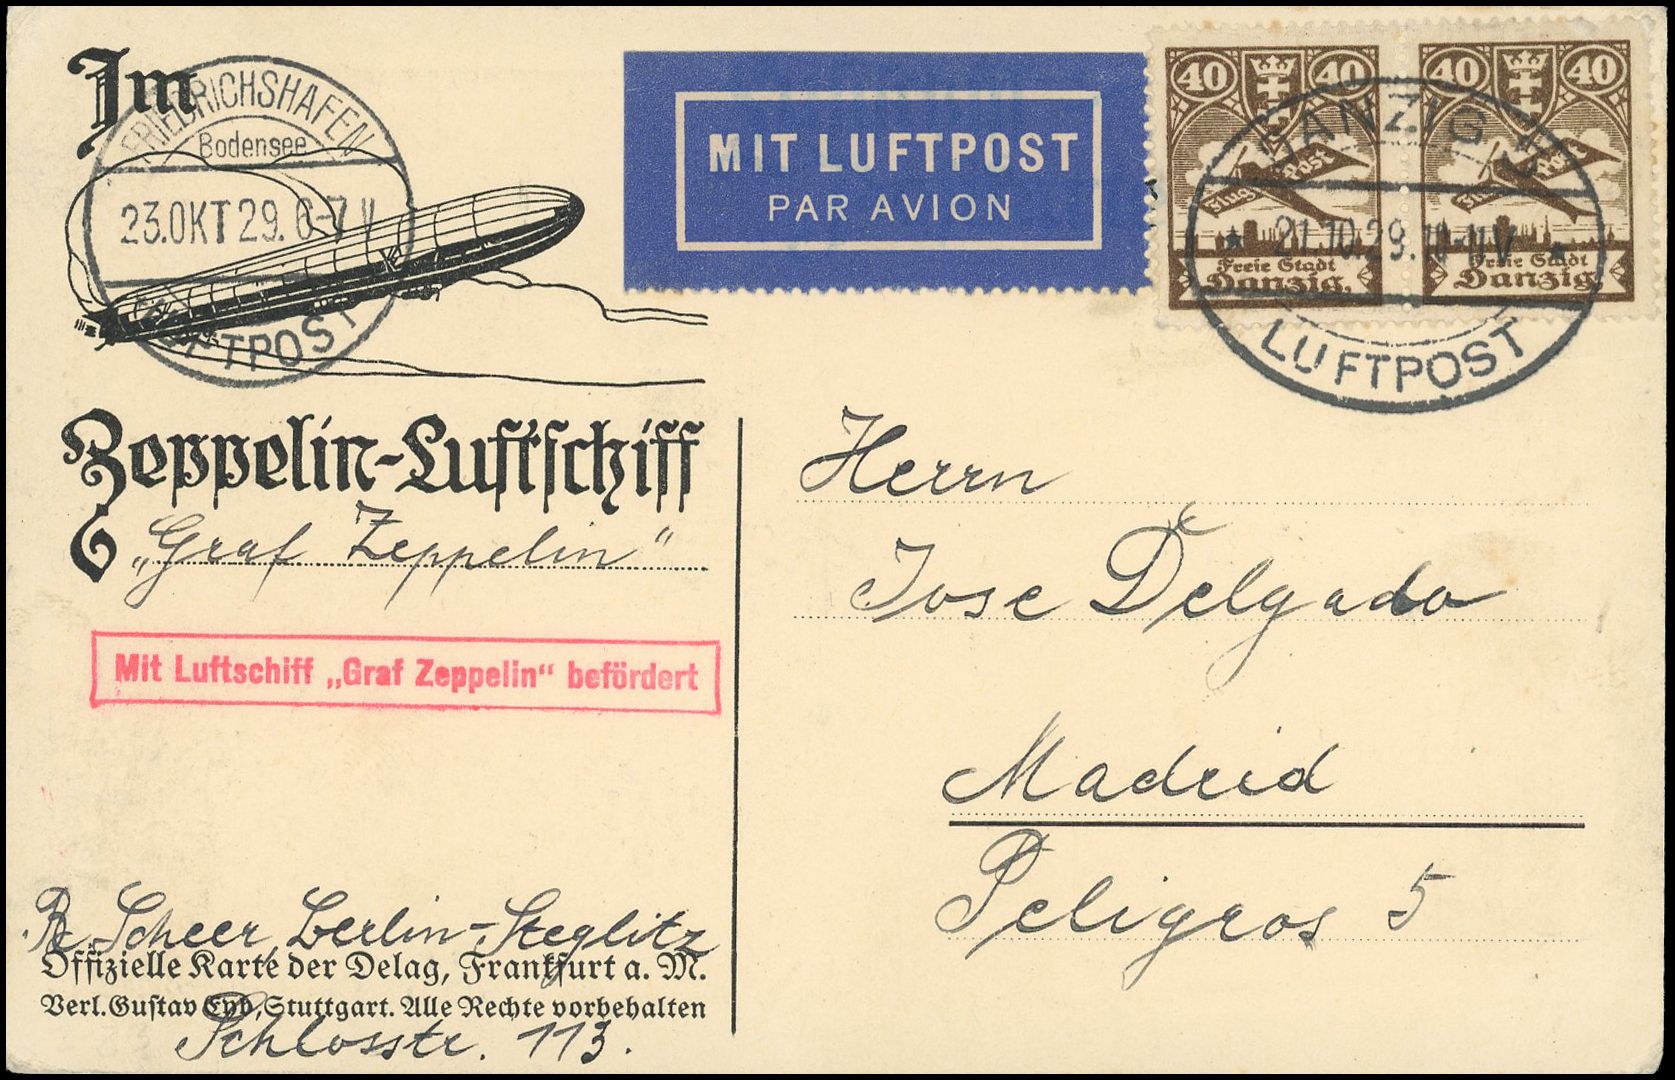 Im
FRIEDRICHSHAFEN
Bodensee
23.OKT 29. 6-7 V
LUFTPOST
MIT LUFTPOST
PAR AVION
40 40
Flug Post
Freie Stadt
Danzig.
40 40
Flug Post
Freie Stadt
Danzig.
DANZIG 5
* 21.10.29. 10-11 V *
LUFTPOST
Zeppelin-Luftschiff
„Graf Zeppelin“
Mit Luftschiff „Graf Zeppelin“ befördert
Herrn
Jose Delgado
Madrid
Peligros 5
Scheer, Berlin-Steglitz
Offizielle Karte der Delag, Frankfurt a. M.
Verl. Gustav Eyb, Stuttgart. Alle Rechte vorbehalten
Schlosstr. 113.